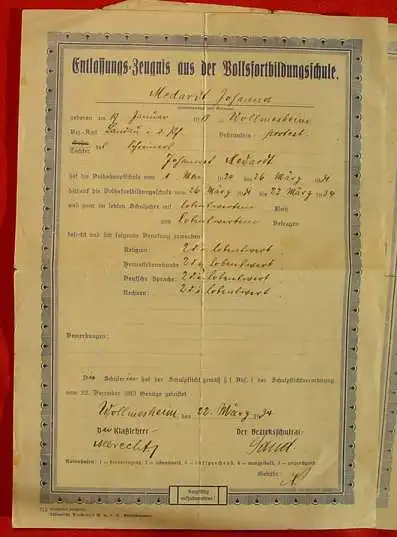 Entlassungs-Zeugnis aus der Volksfortbildungsschule.
Medardt Johanna
geboren am 19 Januar 1918 in Wollmesheim
Bez.-Amt Landau i. d. Pf. Bekenntnis protest.
Tochter des Schreiners
Johannes Medardt
hat die Volkshauptschule vom 1 Mai 1924 bis 26 März 1931
hierauf die Volksfortbildungsschule vom 26 März 31 bis 22 März 1934
und zwar im letzten Schuljahre mit lobenswertem Fleiß
und lobenswertem Betragen
besucht und sich folgende Benotung erworben
Religion: 2 d. i. lobenswert.
2 d. i. lobenswert.
Deutsche Sprache: 2 d. i. lobenswert.
Rechnen: 2 d. i. lobenswert.
Bemerkungen:
Die Schülerin hat der Schulpflicht gemäß § 1 Abs. 1 der Schulpflichtverordnung
vom 22. Dezember 1913 Genüge geleistet.
Wollmesheim, den 22. März 1934
Der Klaßlehrer: Der Bezirksschulrat:
Albrecht
Notenstufen: 1 = hervorragend, 2 = lobenswert, 3 = entsprechend, 4 = mangelhaft, 5 = ungenügend
Gebühr:
Sorgfältig
aufzubewahren!